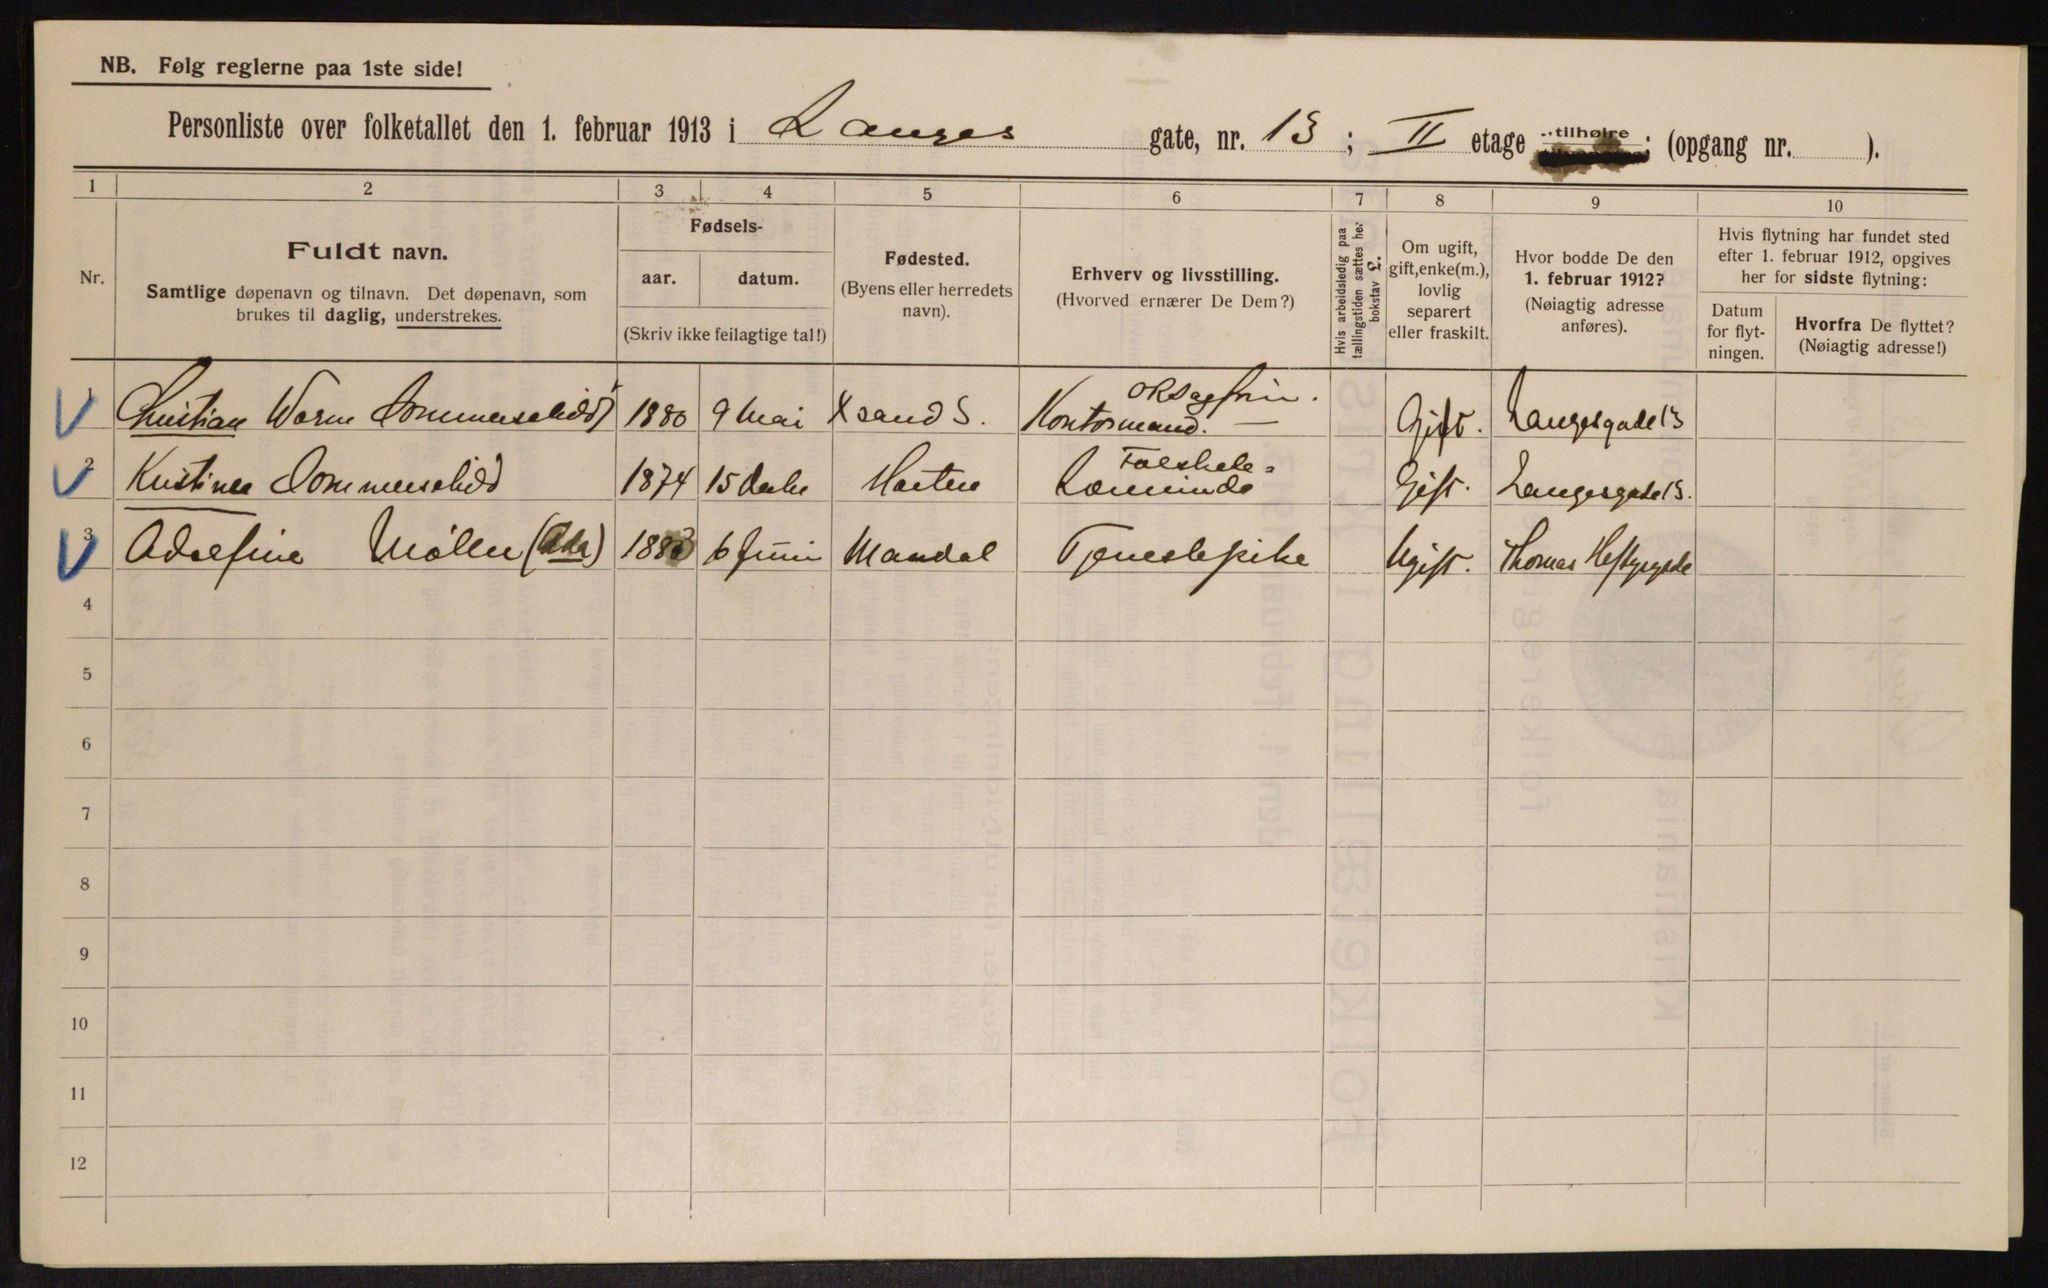 NB. Følg reglerne paa 1ste side!
Personliste over folketallet den 1. februar 1913 i Langes gate, nr. 13; II etage tilhøire (opgang nr. ).
1 2 3 4 5 6 7 8 9 10
Nr.
Fuldt navn.
Samtlige døpenavn og tilnavn. Det døpenavn, som
brukes til daglig, understrekes.
Fødsels-
aar. datum.
(Skriv ikke feilagtige tal!)
Fødested.
(Byens eller herredets
navn).
Erhverv og livsstilling.
(Hvorved ernærer De Dem?)
Hvis arbeidsledig paa
tællingstiden sættes her
bokstav L.
Om ugift,
gift, enke(m.),
lovlig
separert
eller fraskilt.
Hvor bodde De den
1. februar 1912?
(Nøiagtig adresse
anføres).
Hvis flytning har fundet sted
efter 1. februar 1912, opgives
her for sidste flytning:
Datum
for flyt-
ningen.
Hvorfra De flyttet?
(Nøiagtig adresse!)
1 Christian Worm Sommerschild 1880 9 Mai Xsand S. Kontormand. Gift. Langesgade 13
2 Kristinea Sommerschild 1874 15 Gift. Langesgade 13.
3 Adolfine Møller (Ada) 1883 6 Juni Mandal Tjenestepike Ugift. Thomas Heftyesgde
4
5
6
7
8
9
10
11
12